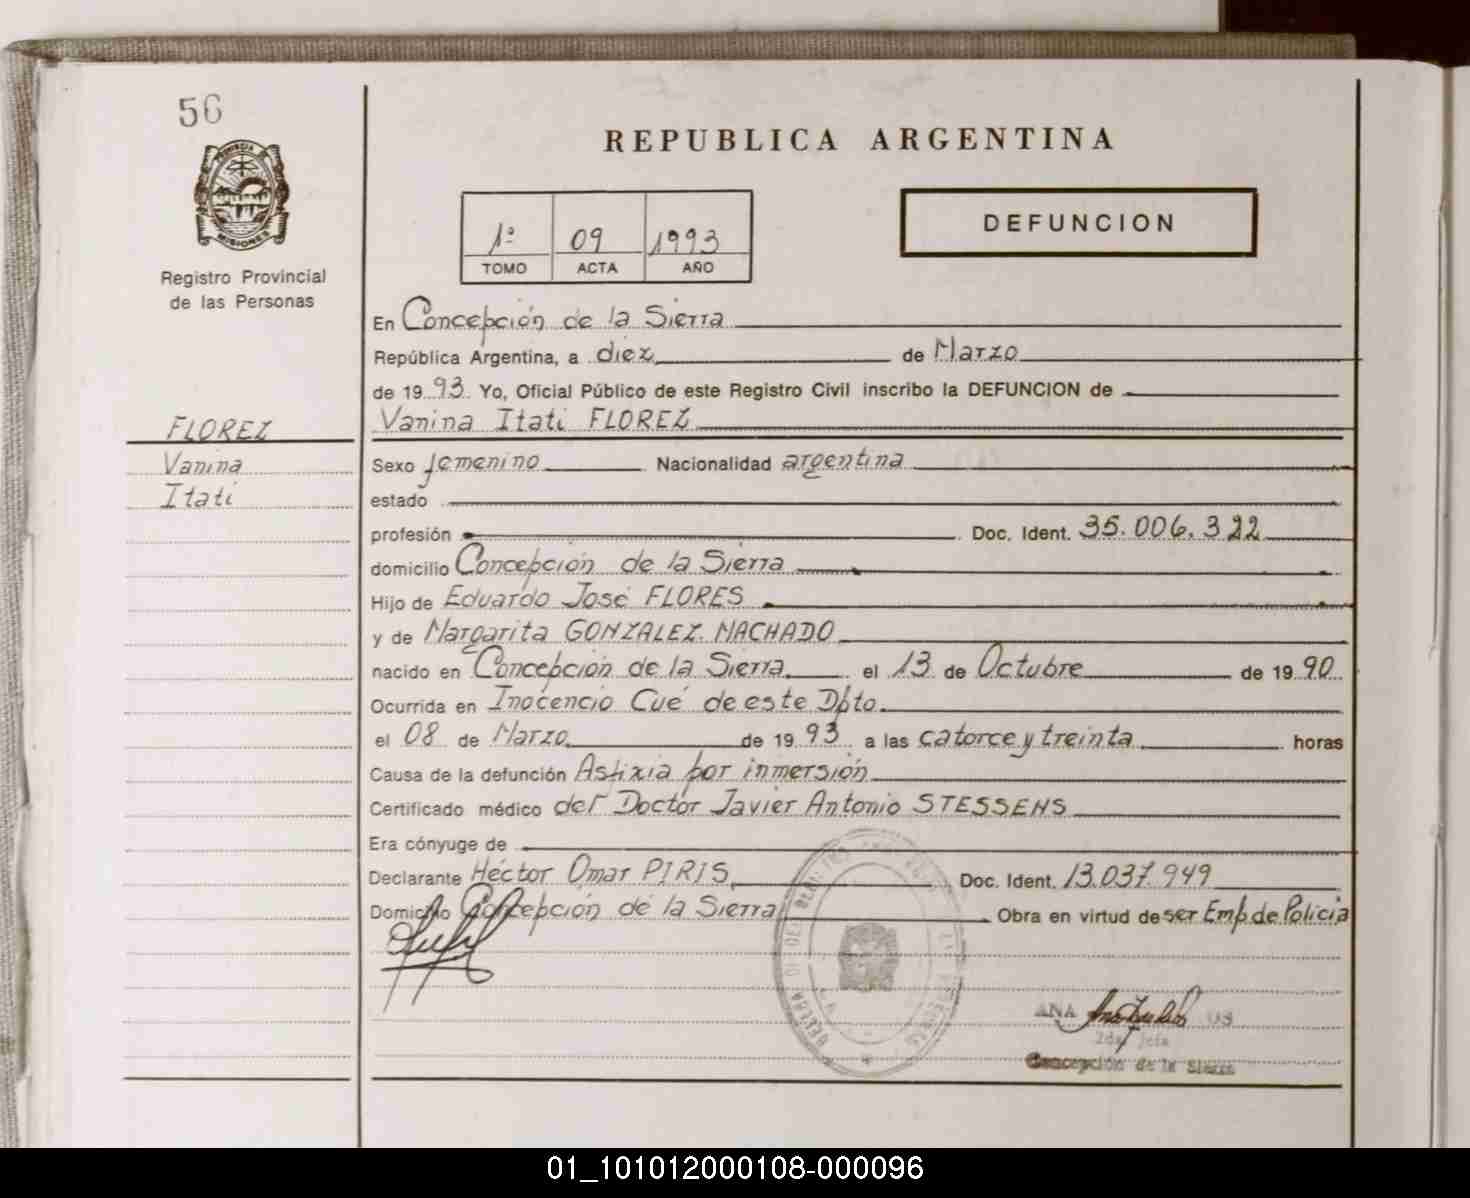 56
REPUBLICA ARGENTINA
PROVINCIA DE
MISIONES
Registro Provincial
de las Personas
1º 09 1993
TOMO ACTA AÑO
DEFUNCION
En Concepción de la Sierra
República Argentina, a diez de Marzo
de 1993 Yo, Oficial Público de este Registro Civil inscribo la DEFUNCION de
FLOREZ
Vanina
Itatí
Vanina Itatí FLOREZ
Sexo femenino Nacionalidad argentina
estado
profesión Doc. Ident. 35.006.322
domicilio Concepción de la Sierra
Hijo de Eduardo José FLORES
y de Margarita GONZALEZ MACHADO
nacido en Concepción de la Sierra el 13 de Octubre de 1990
Ocurrida en Inocencio Cué de este Dpto.
el 08 de Marzo de 1993 a las catorce y treinta horas
Causa de la defunción Asfixia por inmersión
Certificado médico del Doctor Javier Antonio STESSENS
Era cónyuge de
Declarante Héctor Omar PIRIS Doc. Ident. 13.037.949
Domicilio Concepción de la Sierra Obra en virtud de ser Emp de Policia
ANA
Concepción de la Sierra
01_101012000108-000096